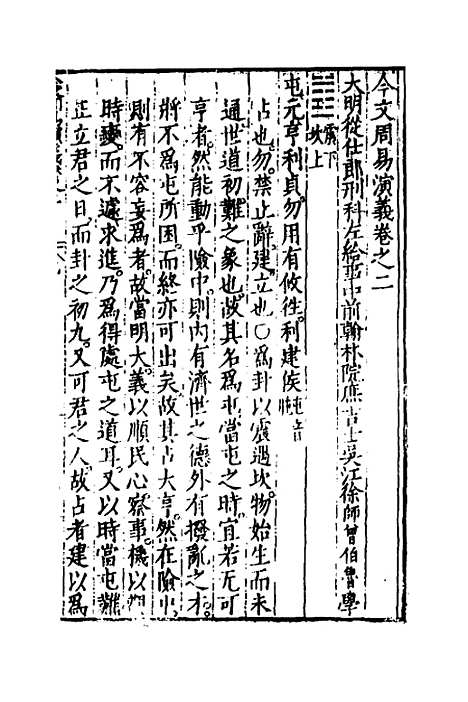 今文周易演義卷之二
大明從仕郎刑科左給事中前翰林院庶吉士吳江徐師曾伯魯學
震下
坎上
屯元亨利貞勿用有攸往利建侯屯音肫
占也勿禁止辭建立也○爲卦以震遇坎物始生而未
通世道初難之象也故其名爲屯當屯之時宜若无可
亨者然能動乎險中則內有濟世之德外有撥亂之才
將不爲屯所困而終亦可出矣故其占大亨然在險中
則有不容妄爲者故當明大義以順民心察事機以觀
時變而不遽求進乃爲得處屯之道耳又以時當屯難
正立君之日而卦之初九又可君之人故占者建以爲